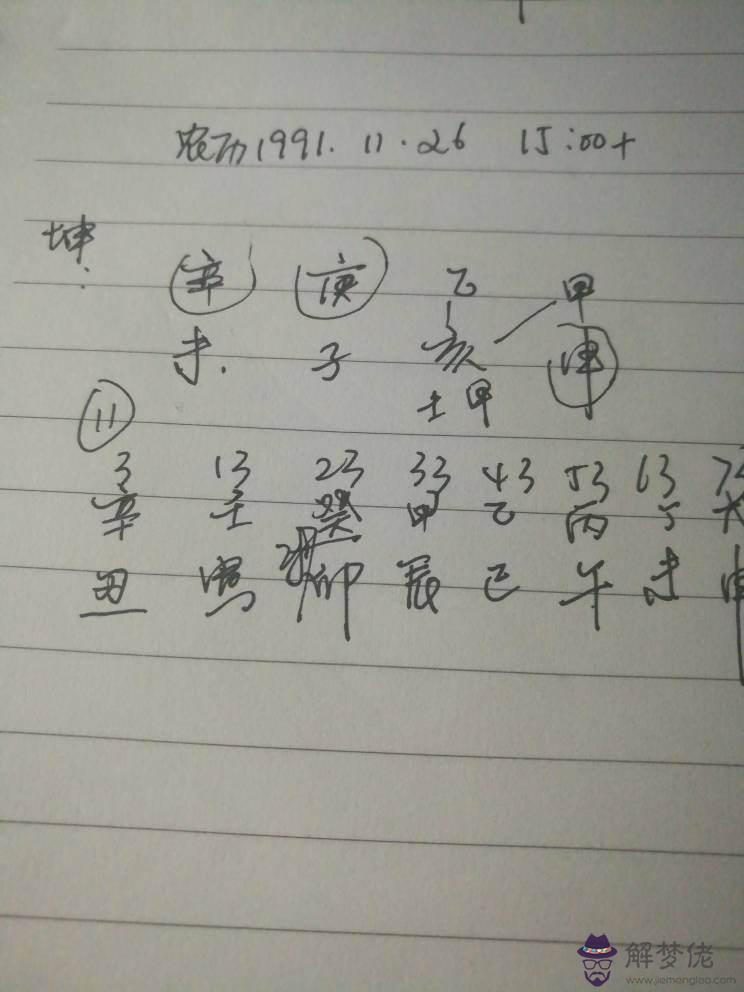 农历1991.11.26 15:00+
坤:
辛 庚 乙 甲
未. 子 亥 申
壬甲
11
3 13 23 33 43 53 63
辛 壬 癸 甲 乙 丙 丁
丑 寅 卯 辰 巳 午 未 申
解梦佬
www.jiemenglao.com